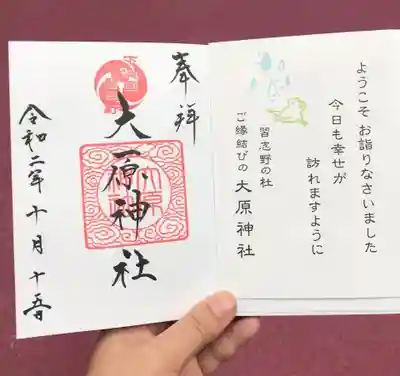 ようこそ お詣りなさいました
今日も幸せが
訪れますように
習志野の杜
ご縁結びの 大原神社
奉拝
大原神社
令和二年十月十五日